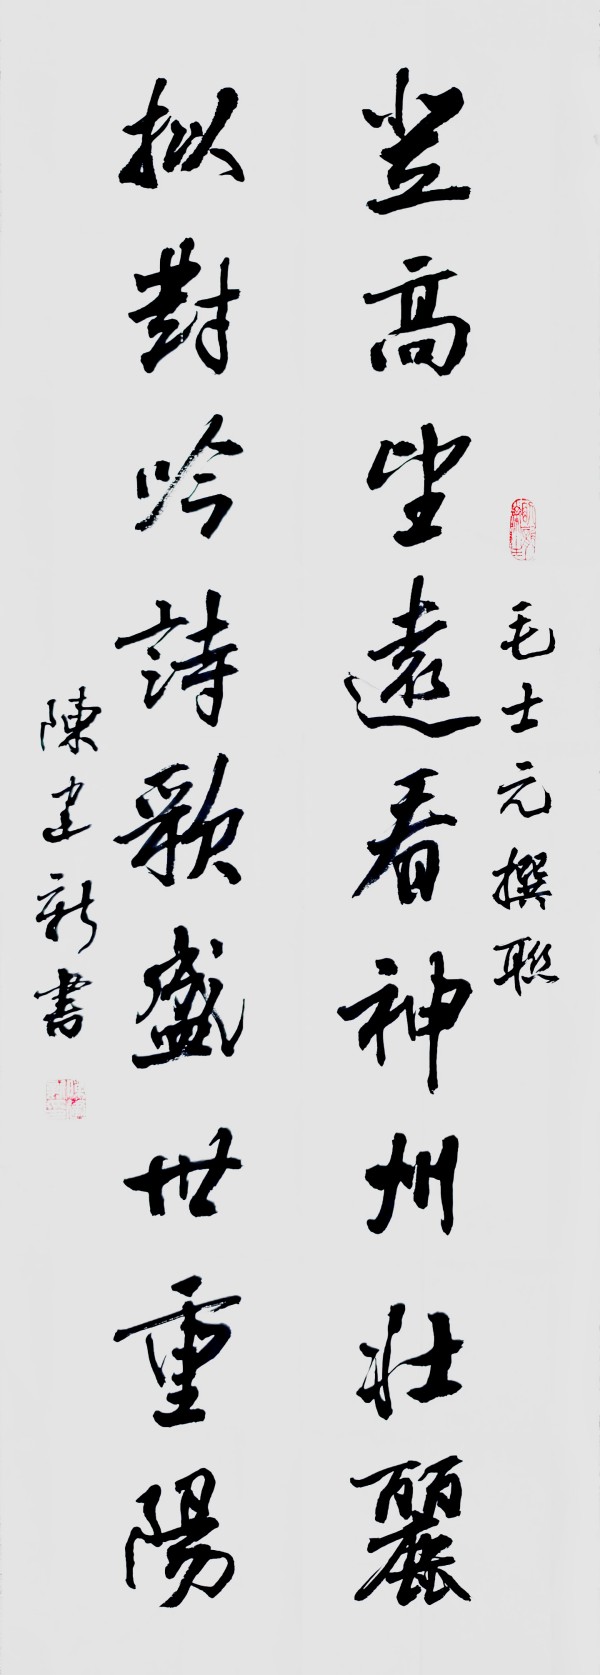 毛士元撰聯
登高望遠看神州壯麗
拟對吟詩歌盛世重陽
陳建新書